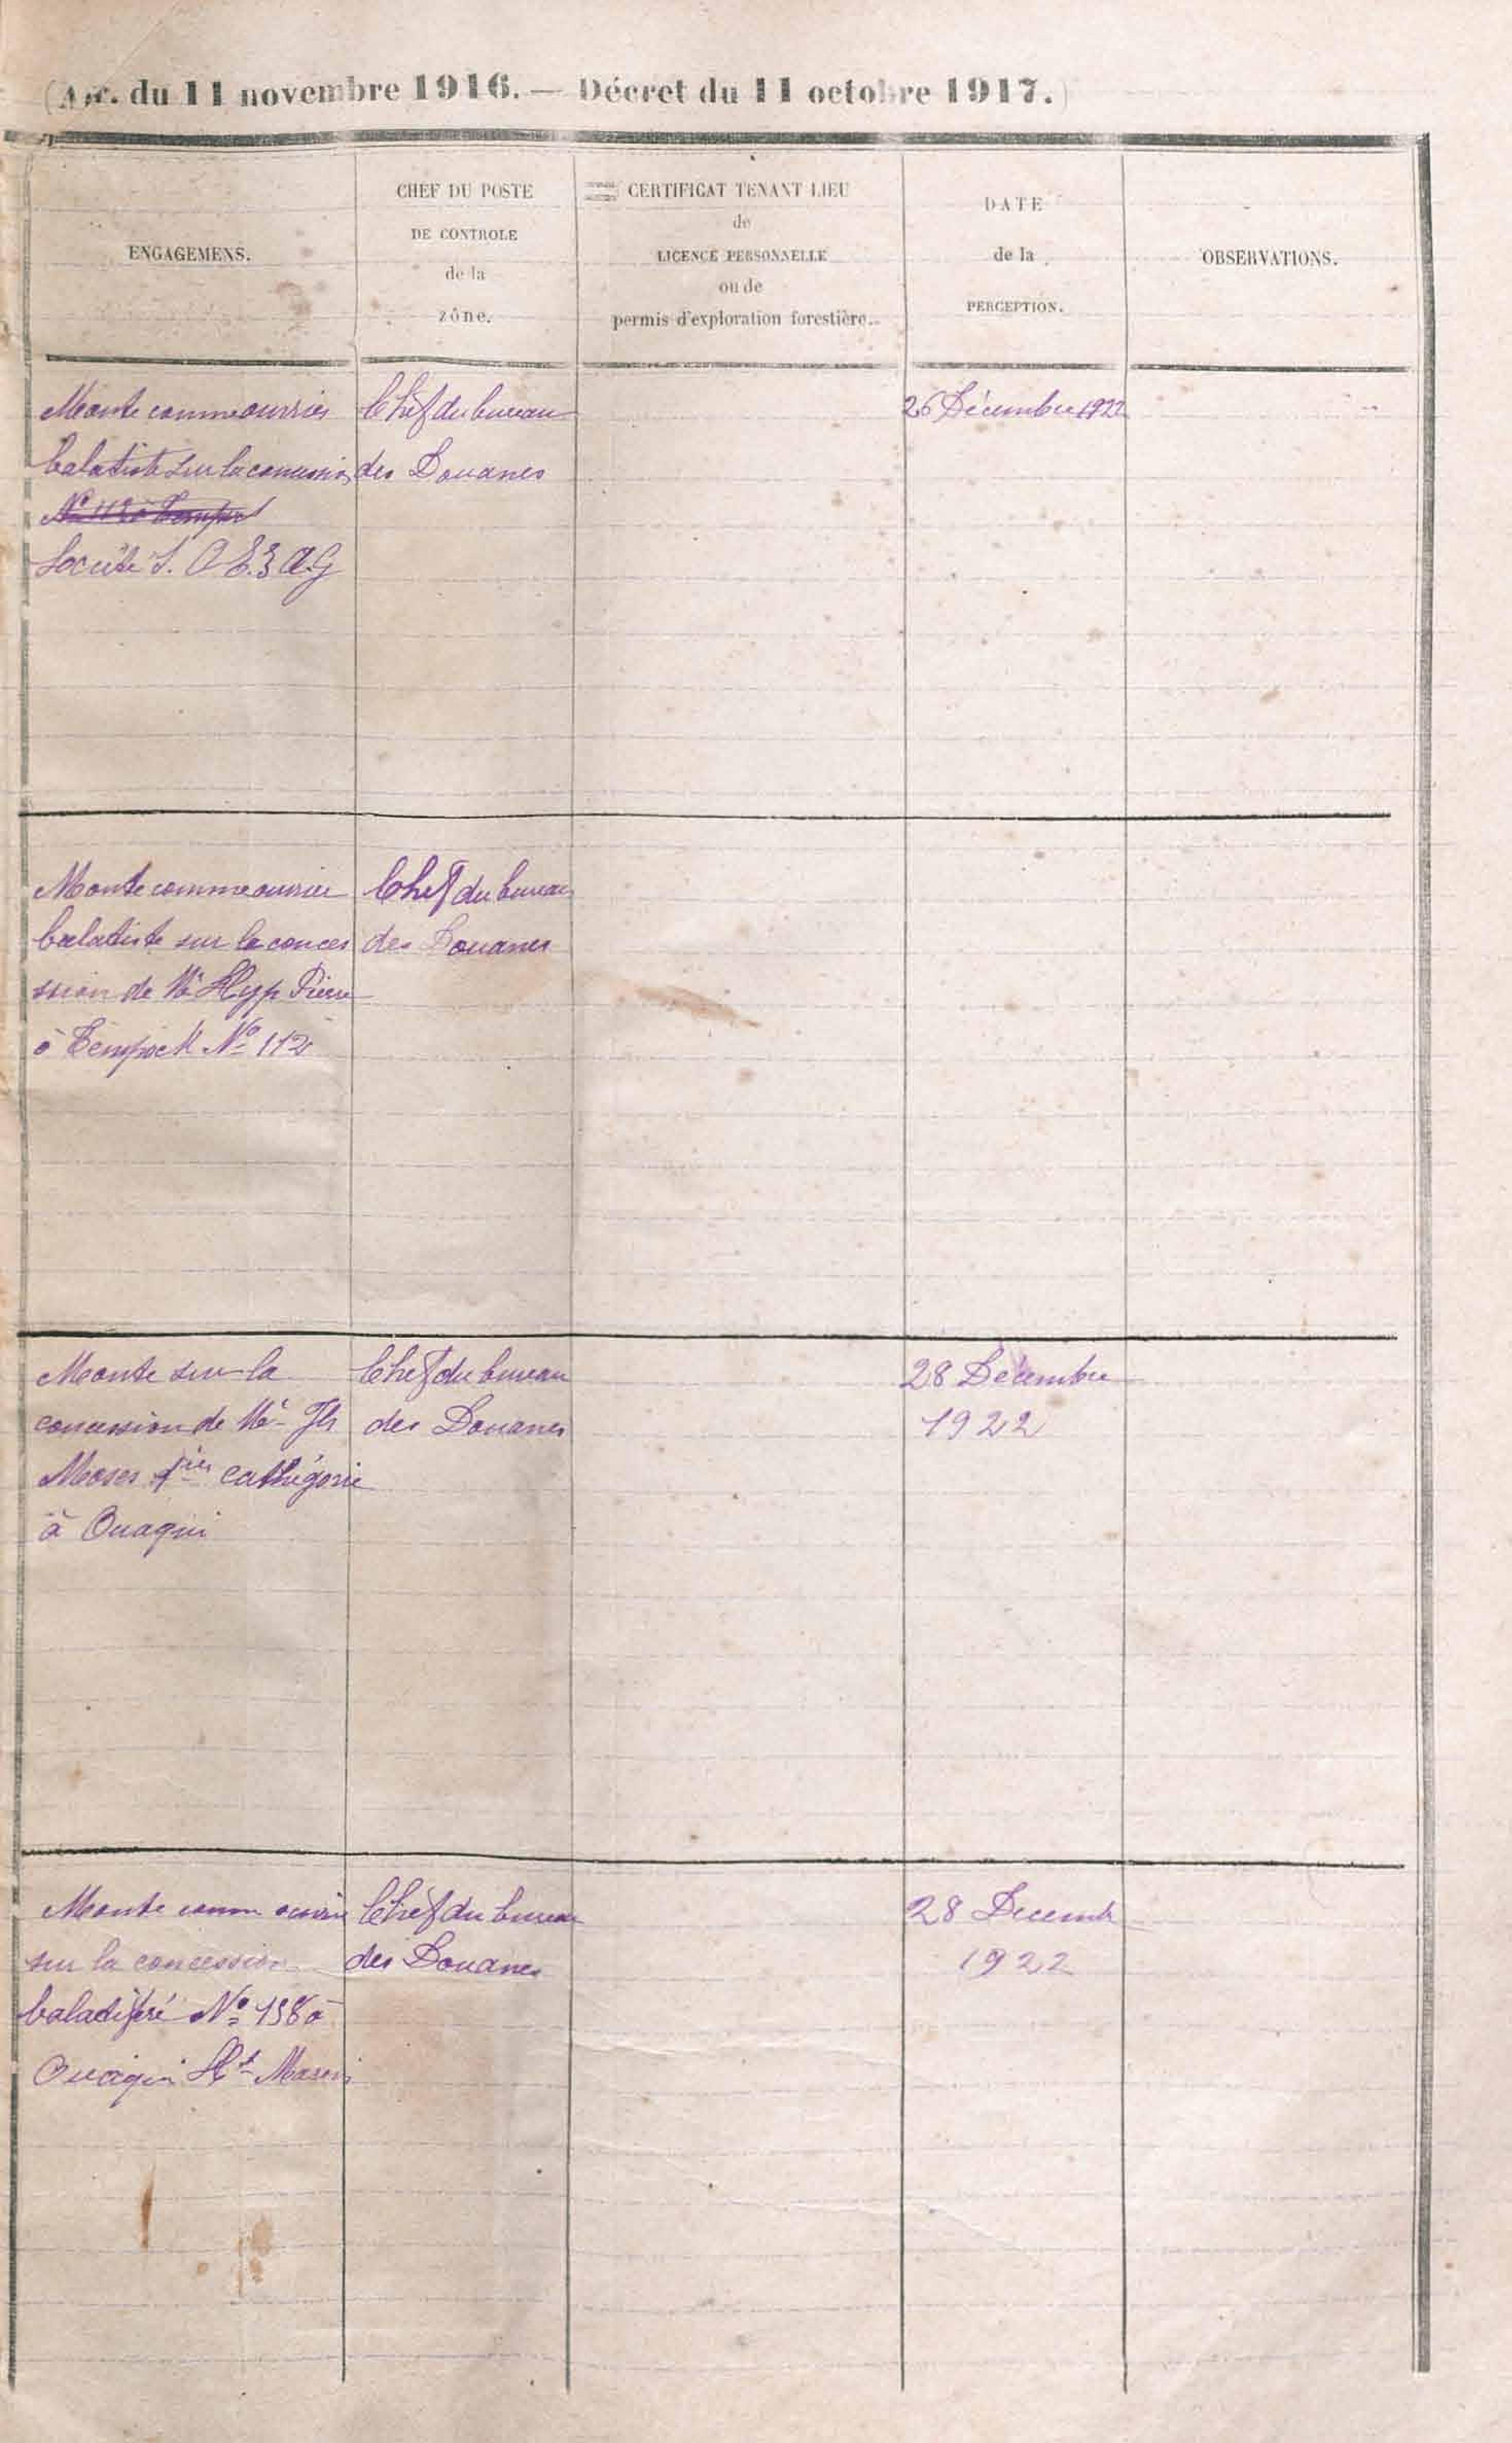 (Arr. du 11 novembre 1916. — Décret du 11 octobre 1917.)
ENGAGEMENS.
CHEF DU POSTE
DE CONTROLE
de la
zône.
CERTIFICAT TENANT LIEU
de
LICENCE PERSONNELLE
ou de
permis d'exploration forestière.
DATE
de la
PERCEPTION.
OBSERVATIONS.
Monte comme ouvrier
balatiste sur la concession
Société S.
Chef du bureau
des Douanes
26 Décembre 1922
Monte comme ouvrier
balatiste sur la conces
ssion de Mr Hyp Pierre
à Tempock No 112
Chef du bureau
des Douanes
Monte sur la
concession de Mr
Moses 1ier cathégorie
à Ouaqui
Chef du bureau
des Douanes
28 Décembre
1922
Monte comm ouvrie
sur la concession
baladiféré No 158 à
Ouaqui
Chef du bureau
des Douanes
28 Decemb
1922